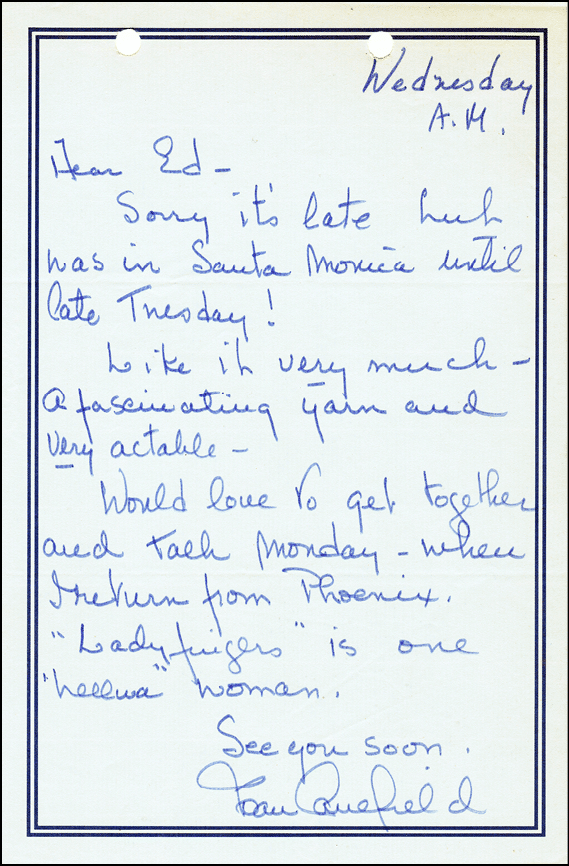 Wednesday
A.M.
Dear Ed -
Sorry it's late but
was in Santa Monica until
late Tuesday!
Like it very much -
A fascinating yarn and
very actable -
Would love to get together
and talk Monday - when
I return from Phoenix.
"Ladyfingers" is one
"helluva" woman.
See you soon.
Joan Caulfield